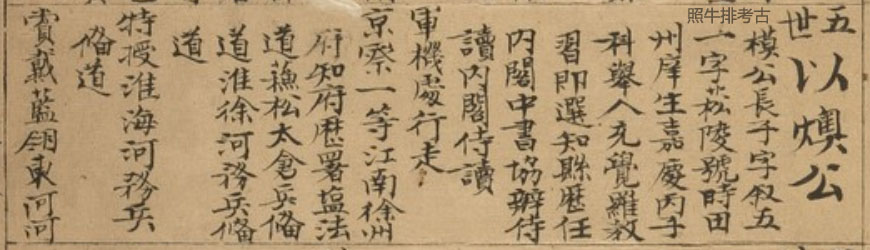 照牛排考古
五世
以燠公
模公長子字叙五
一字崧陵號時田
州庠生嘉慶丙子
科舉人充覺羅教
習即選知縣歷任
内閣中書協辦侍
讀内閣侍讀
軍機處行走
京察一等江南徐州
府知府歷署塩法
道蘓松太倉兵備
道淮徐河務兵備
道
特授淮海河務兵
備道
賞戴藍翎東河河